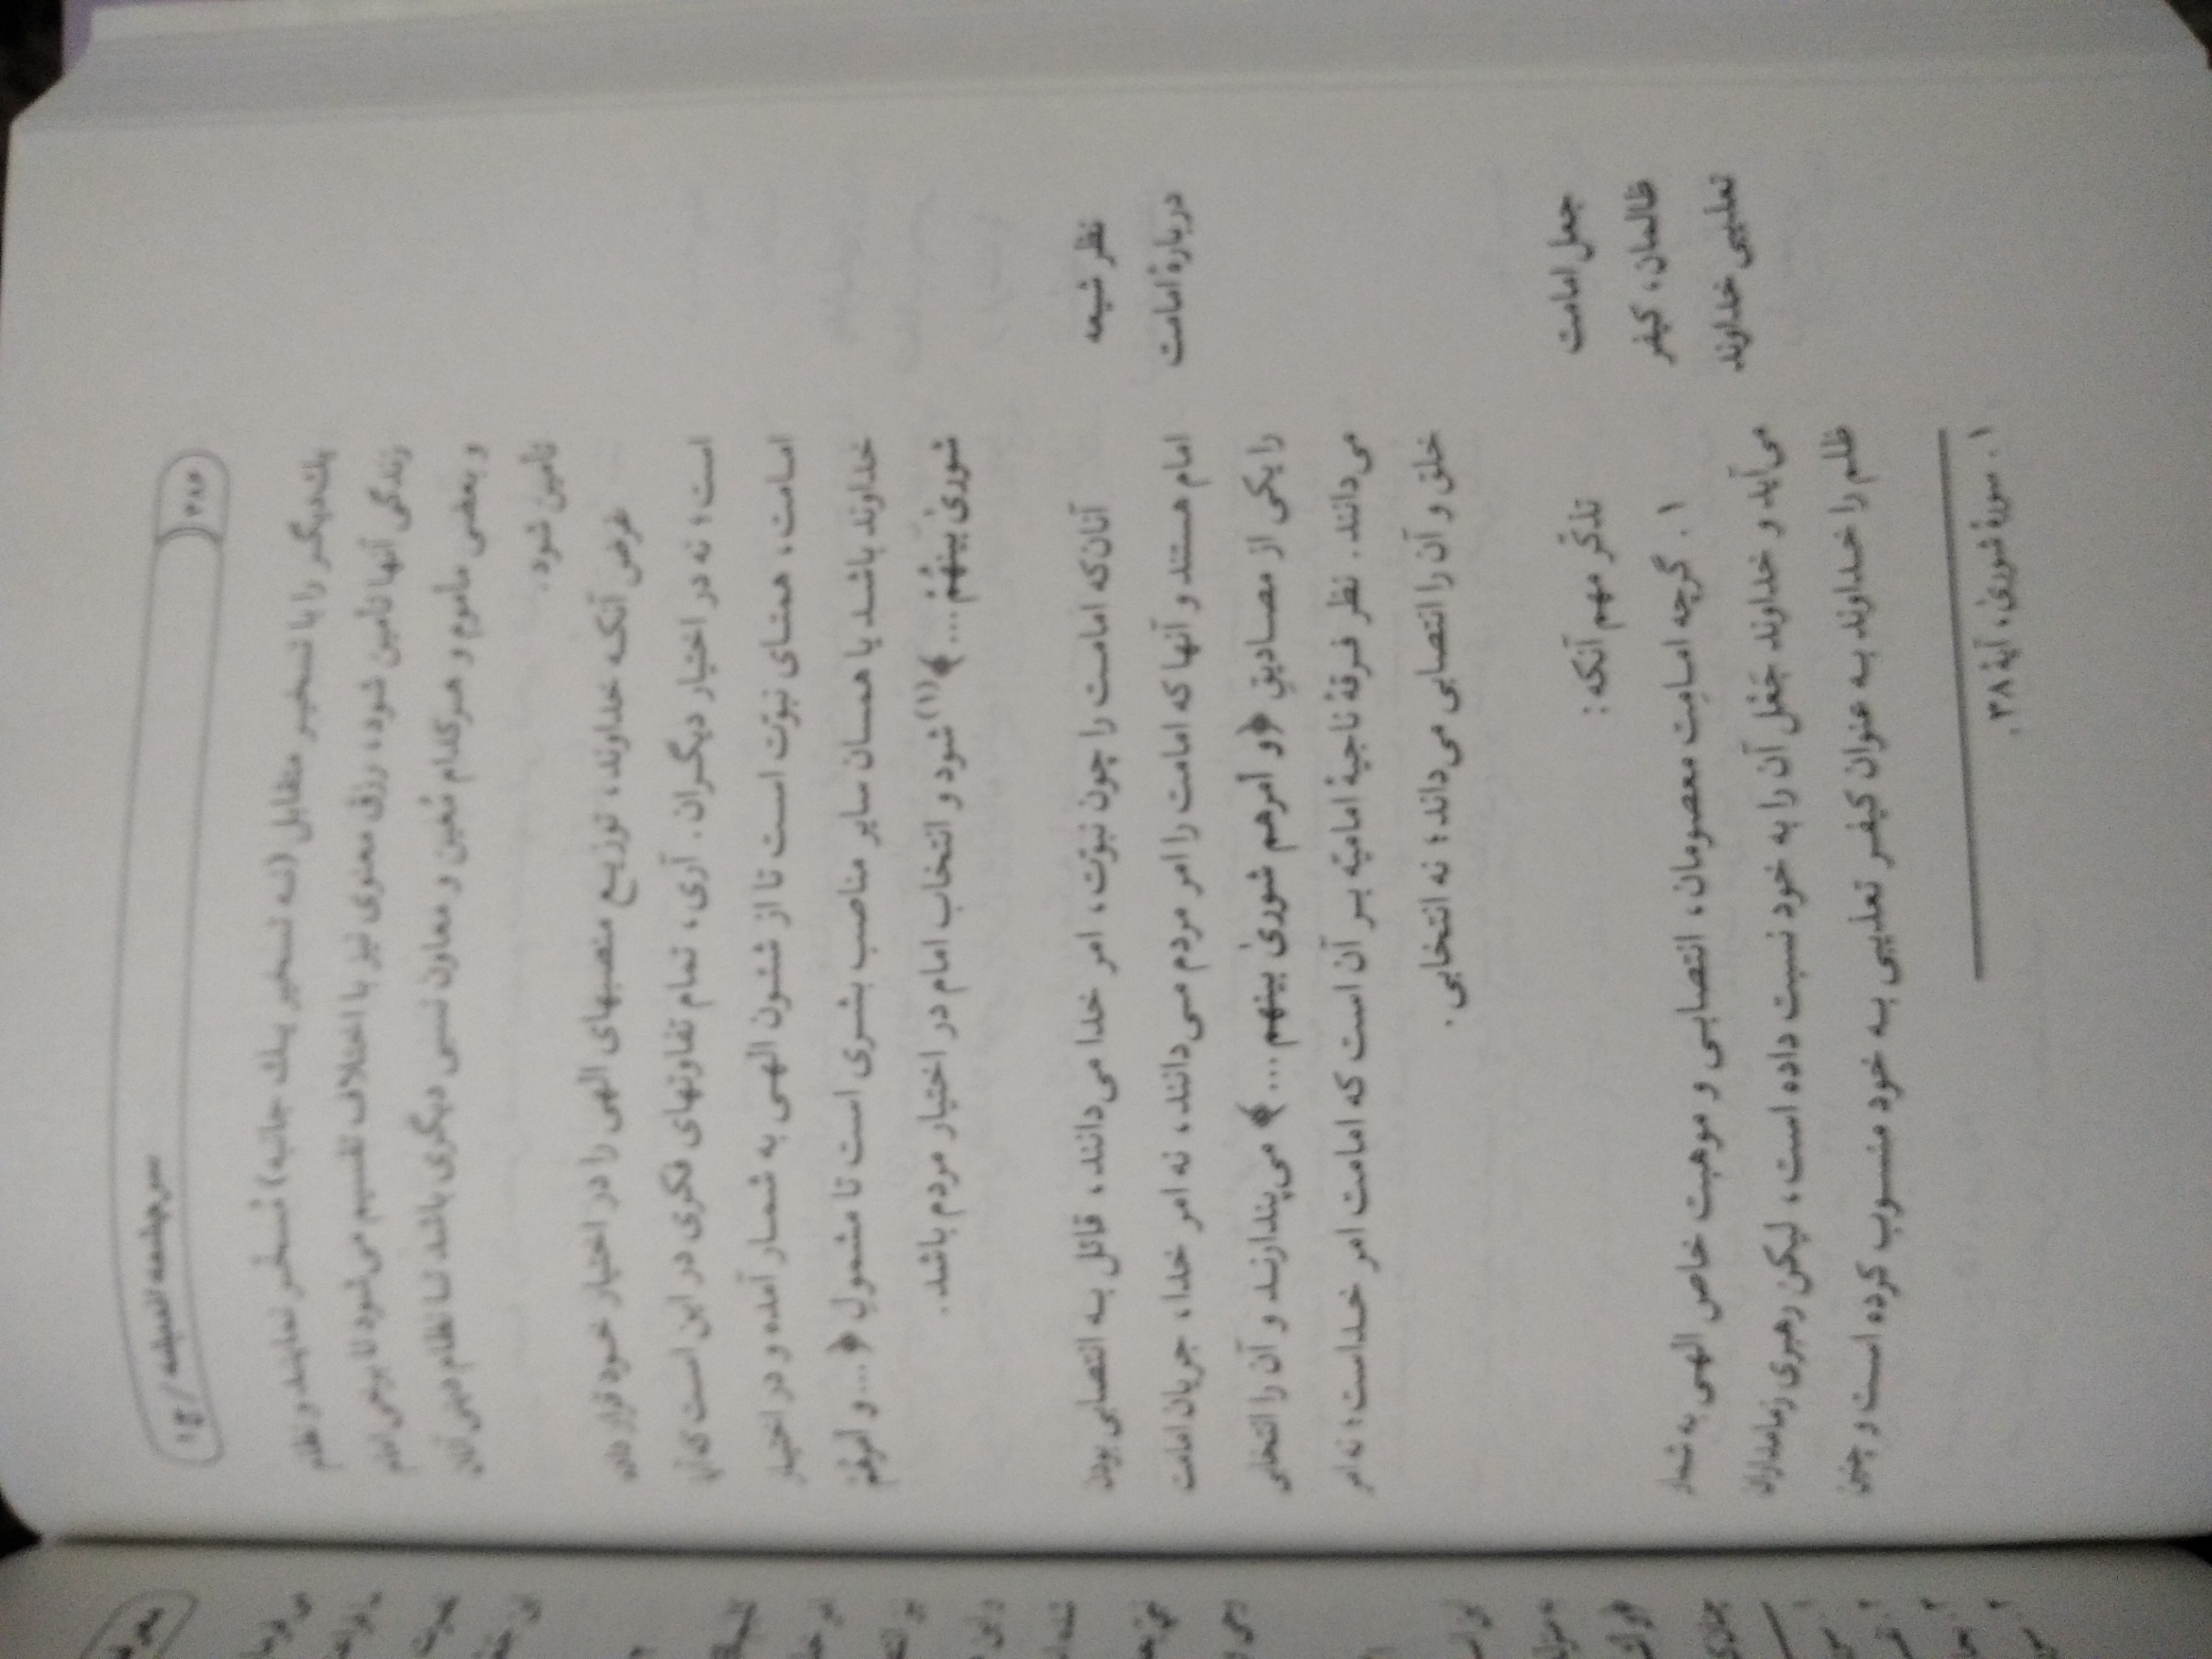 سرچشمه اندیشه / ج۱
۳۸۶
یک‌دیگر را با تسخیر متقابل (نه تسخیر یک جانبه) مُسخَّر نمایند و نظم
زندگی آنها تأمین شود، رزق معنوی نیز با اختلاف تقسیم می‌شود تا برخی امام
و بعضی مأموم و هرکدام مُعین و معاون نسبی دیگری باشد تا نظام دینی آنان
تأمین شود.
غرض آنکه خداوند، توزیع منصبهای الهی را در اختیار خود قرار داده
است؛ نه در اختیار دیگران. آری، تمام تفاوتهای فکری در این است که آیا
امامت، همتای نبوّت است تا از شئون الهی به شمار آمده و در اختیار
خداوند باشد یا همسان سایر مناصب بشری است تا مشمولِ ﴿...و أمرهُم
شوریٰ بینَهُم...﴾(۱) شود و انتخاب امام در اختیار مردم باشد.
نظر شیعه
دربارهٔ امامت
آنان که امامت را چون نبوّت، امر خدا می‌دانند، قائل به انتصابی بودن
امام هستند و آنها که امامت را امر مردم می‌دانند، نه امر خدا، جریان امامت
را یکی از مصادیقِ ﴿و أمرهم شوریٰ بینهم...﴾ می‌پندارند و آن را انتخابی
می‌دانند. نظر فرقهٔ ناجیهٔ امامیّه بر آن است که امامت امر خداست؛ نه امر
خلق و آن را انتصابی می‌داند؛ نه انتخابی.
تذکّر مهم آنکه:
جعل امامت
ظالمان، کیفر
تعلیبی خداوند
۱. گرچه امامِت معصومان، انتصابی و موهبت خاص الهی به شمار
می‌آید و خداوند جَعْل آن را به خود نسبت داده است، لیکن رهبری زمامداران
ظلم را خداوند به عنوان کیفر تعلیبی به خود منسوب کرده است و چنین
۱. سورهٔ شوریٰ، آیهٔ ۳۸.